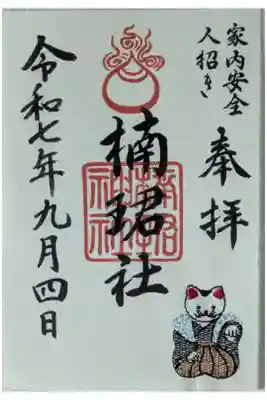 家内安全
人招き
奉拝
楠珺社
令和七年九月四日